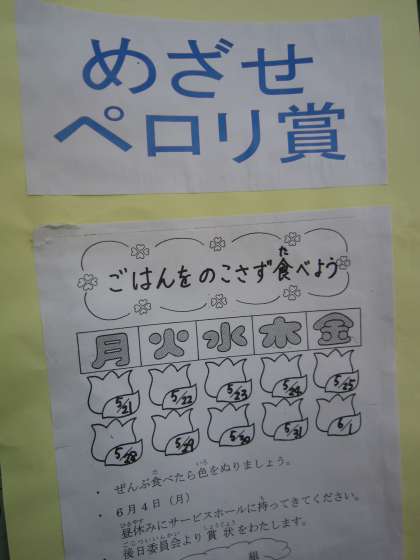 めざせ
ペロリ賞
ごはんをのこさず食べよう
月 火 水 木 金
5/21 5/22 5/23 5/24 5/25
5/28 5/29 5/30 5/31 6/1
・ ぜんぶ食べたら色をぬりましょう。
・ 6月4日（月）
昼休みにサービスホールに持ってきてください。
・ 後日委員会より賞状をわたします。
組